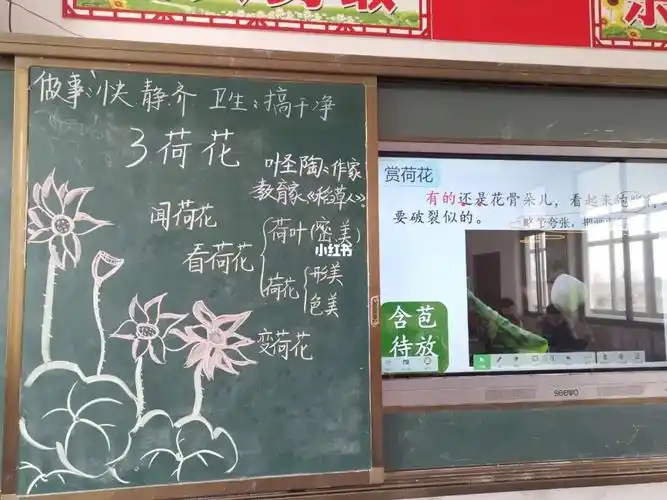 做事:快 静.齐 卫生:搞干净
3 荷花
叶圣陶:作家
教育家《稻草人》
闻荷花
看荷花
荷叶(密.美)
荷花
形美
色美
变荷花
小红书
赏荷花
有的还是花骨朵儿,看起来饱
要破裂似的。
含苞
待放
seewo